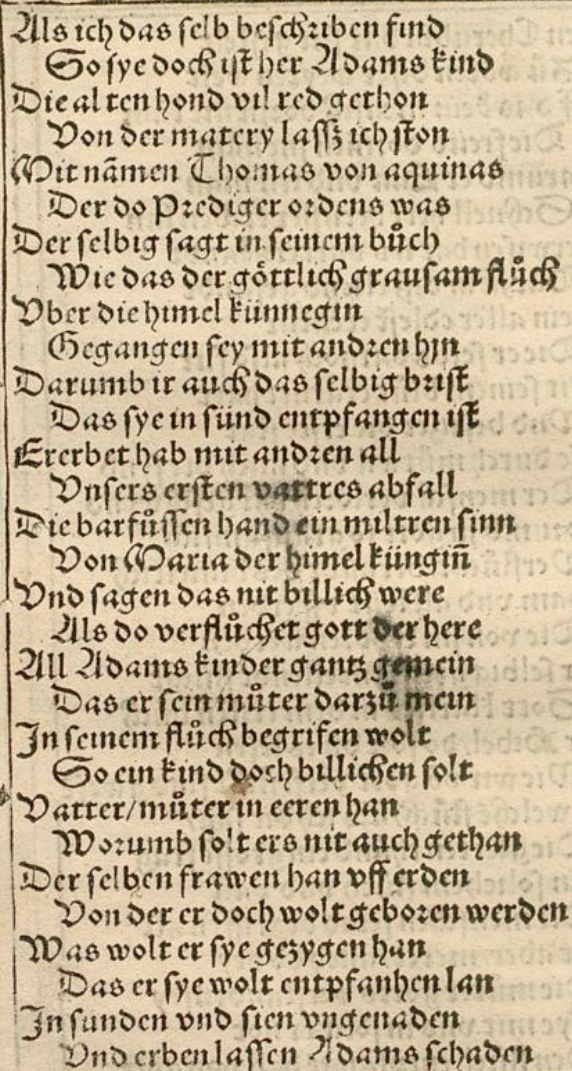 Als ich das selb beschriben find
So sye doch ist her Adams kind
Die alten hond vil red gethon
Von der matery lassz ich ston
Mit nãmen Thomas von aquinas
Der do Prediger ordens was
Der selbig sagt in seinem bůch
Wie das der göttlich grausam flůch
Vber die himel künnegin
Gegangen sey mit andren hyn
Darumb ir auch das selbig brist
Das sye in sünd entpfangen ist
Ererbet hab mit andren all
Vnsers ersten vattres abfall
Die barfůssen hand ein miltren sinn
Von Maria der himel küngin̄
Vnd sagen das nit billich were
Als do verflůchet gott der here
All Adams kinder gantz gemein
Das er sein můter darzů mein
In seinem flůch begrifen wolt
So ein kind doch billichen solt
Vatter/můter in eeren han
Worumb solt ers nit auch gethan
Der selben frawen han vff erden
Von der er doch wolt geboren werden
Was wolt er sye gezygen han
Das er sye wolt entpfanhen lan
In sunden vnd sien vngenaden
Vnd erben lassen Adams schaden